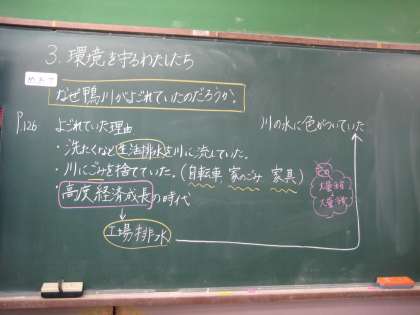 3. 環境を守るわたしたち
めあて
なぜ鴨川がよごれていたのだろうか。
P.126
よごれていた理由
・洗たくなど生活排水を川に流していた。
・川にごみを捨てていた。(自転車 家のごみ 家具)
・高度経済成長の時代
↓
工場排水
川の水に色がついていた
大量